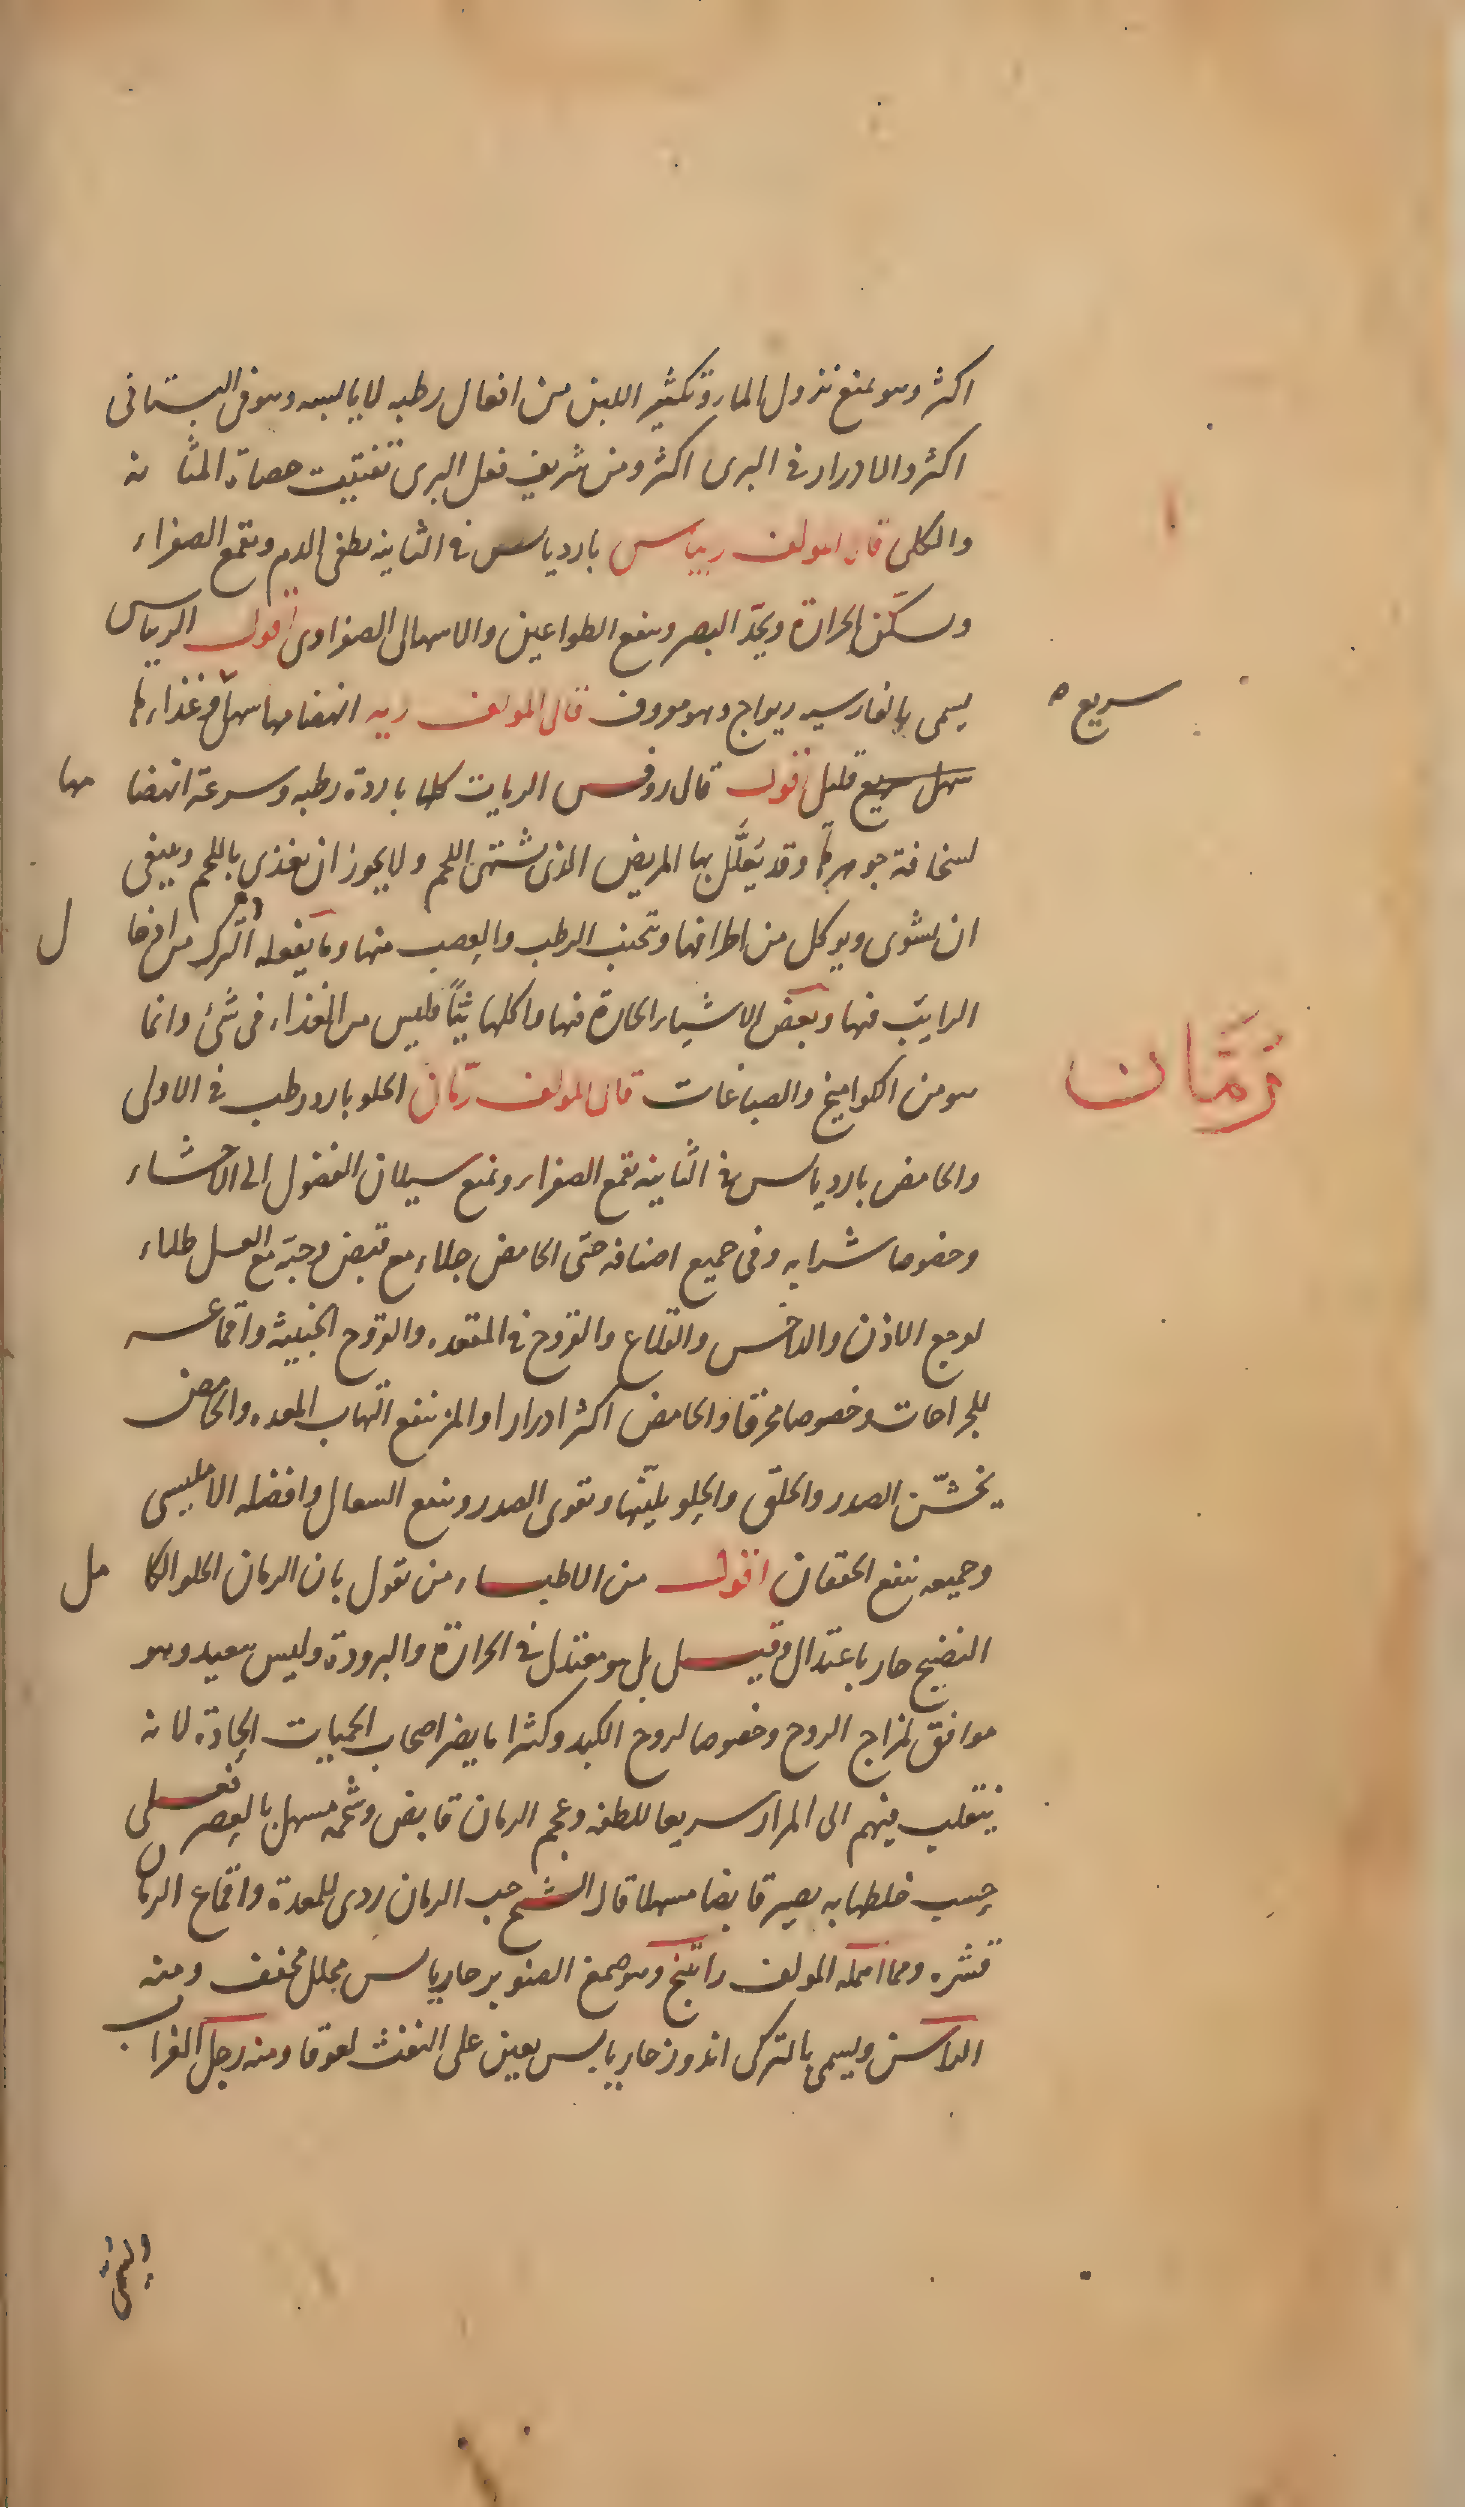 اكثر وهو يمنع نزول الماء وتكثير اللبن من افعال رطبه لا يابسه وهو فى البستانى
اكثر والادرار فى البرى اكثر ومن شريف فعل البرى تفتيت حصاة المثانه
والكلى قال المولف ريباس بارد يابس فى الثانيه يطفى الدم ويقمع الصفراء
ويسكّن الحرارة ويحدّ البصر وينفع الطواعين والاسهال الصفراوى اقول الريباس
يسمى بالفارسيه ريواج وهو معروف قال المولف ريه انهضامها سهل وغذاءها
سريع
سهل سريع قليل اقول قال روفس الريات كلها باردة رطبه وسرعة انهضامها
لسخافة جوهرها وقد يُعَلَّل بها المريض الذى يشتهى اللحم ولا يجوز ان يغذى باللحم وينبغى
ان يشوى ويوكل من اطرافها وتجنب الرطب والعصب منها وما يفعله الترك من ادخال
الرايب فيها وبعض الاشياء الحارة فيها واكلها نيّاً فليس من الغذاء فى شئ وانما
هو من الكواميخ والصباغات قال المولف رمّان الحلو بارد رطب فى الاولى
رُمَّان
والحامض بارد يابس فى الثانيه يقمع الصفراء ويمنع سيلان الفضول الى الاحشاء
وخصوصا شرابه وفى جميع اصنافه حتى الحامض جلاء مع قبض وحبّه مع العسل طلاء
لوجع الاذن والداخس والقلاع والقروح فى المقعده والقروح الخبيثه واقماعه
للجراحات وخصوصا محرقا والحامض اكثر ادرارا والمز ينفع التهاب المعده والحامض
يخشّن الصدر والحلق والحلو يليّنها ويقوى الصدر وينفع السعال وافضله الامليسى
وجميعه ينفع الخفقان اقول من الاطباء من يقول بان الرمان الحلو الكامل
النضيج حار باعتدال وقيل بل هو معتدل فى الحرارة والبرودة وليس ببعيد وهو
موافق لمزاج الروح وخصوصا لروح الكبد وكثيرا ما يضر اصحاب الحميات الحادة لانه
ينقلب فيهم الى المرار سريعا للطفه وعجم الرمان قابض وشحمه مسهل بالعصر فعلى
حسب خلطها به يصير قابضا مسهلا قال الشيخ حب الرمان ردى للمعدة واقماع الرمان
قشره ومما اهمله المولف راتينج وهو صمغ الصنوبر حار يابس محلل مجفف ومنه
الراسن ويسمى بالتركى اندوز حار يابس يعين على النفث لعوقا ومنه رجل الغراب